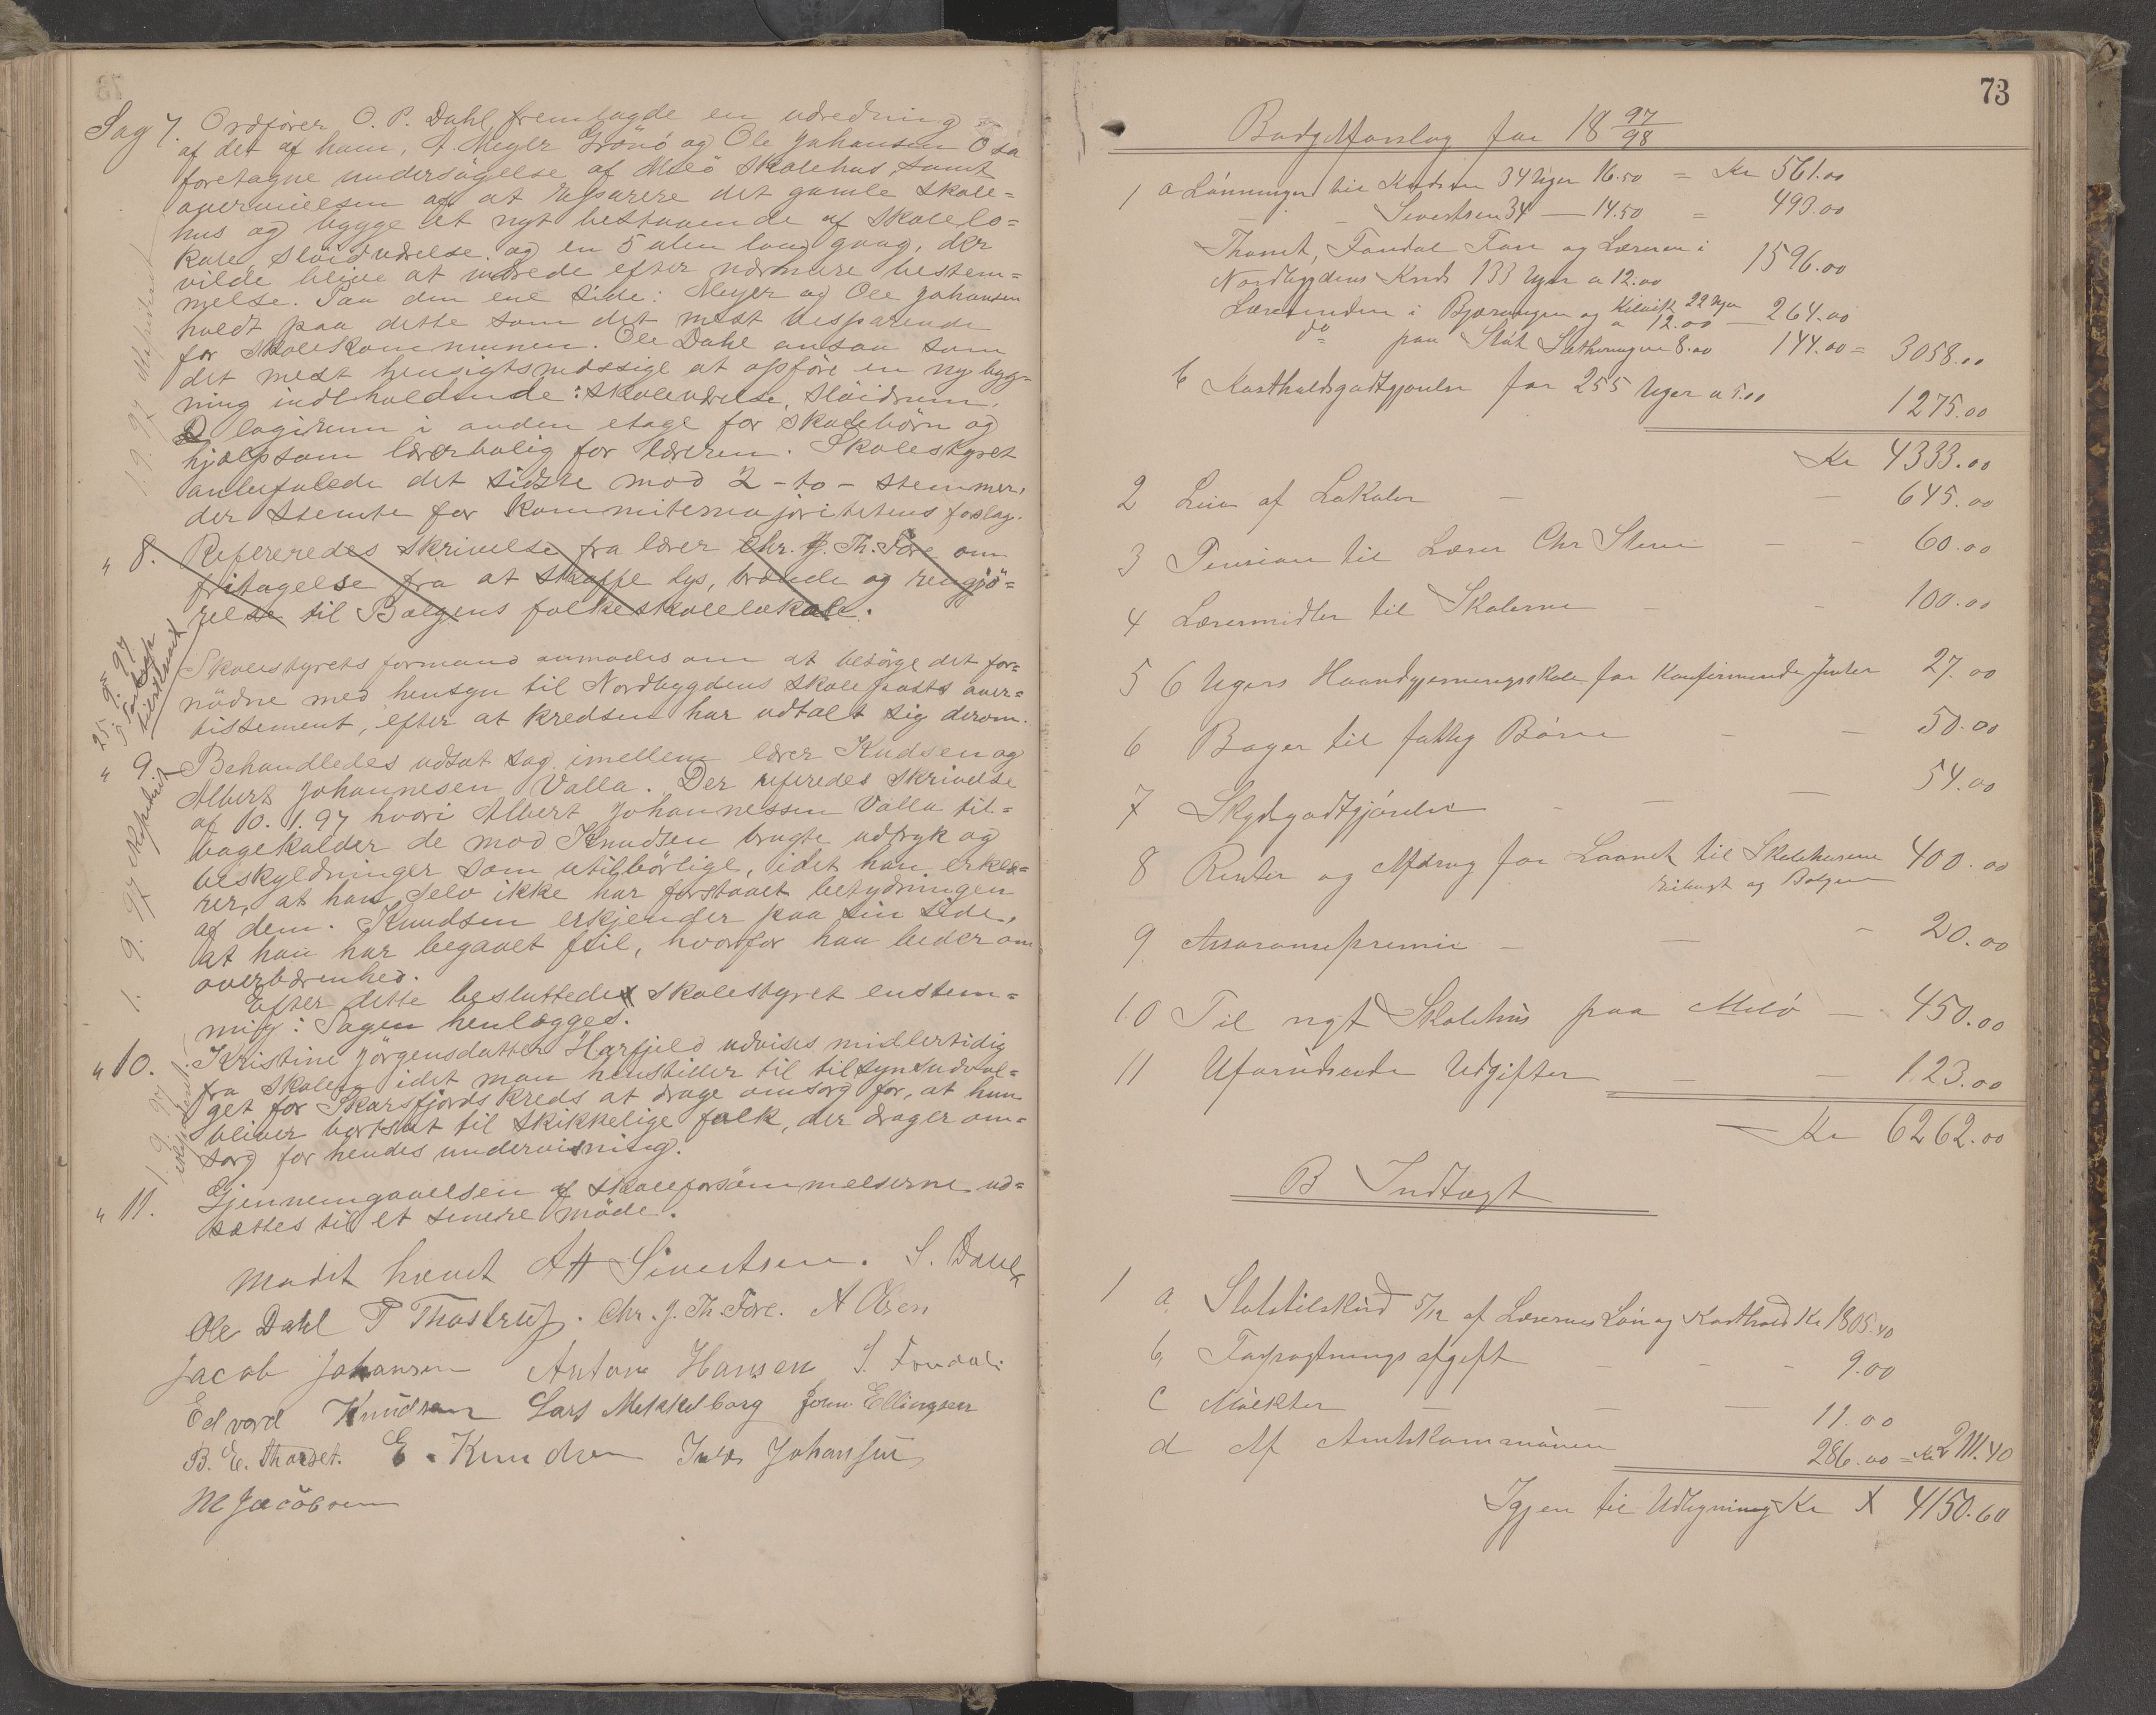 Sag 7. Ordfører O. P. Dahl fremlagde en udredning
af det af ham, A. Meyer Grönö og Ole Johansen Osa
foretagne undersögelse af Melö Skolehus, samt
overveielsen af at reparere det gamle skole=
hus og bygge et nyt bestaaende af skolelo=
kale, slöidværelse og en 5 alen lang gang, der
vilde blive at indrede efter nærmere bestem=
melse. Paa den ene side: Meyer og Ole Johansen
holdt paa dette som det mest besparende
for skolekommunen. Ole Dahl ansaa som
det mest hensigtsmæssige at opföre en ny byg=
ning indeholdende: skoleværelse, slöidrum,
logirum i anden etage for skolebörn og
hjælpsom lærerbolig for læreren. Skolestyret
anbefalede det sidste mod 2 - to - stemmer,
der stemte for kommitemajoritetens forslag.
19. 97 Expederet
" 8. Refereredes skrivelse fra lærer Chr. J. Th. Före om
fritagelse fra at skaffe lys, brænde og rengjö=
relse til Bolgens folkeskolelokale.
Skolestyrets formand anmodes om at besörge det for=
nödne med hensyn til Nordbygdens skoleposts aver=
tissement, efter at kredsen har udtalt sig derom.
25. 9. 97
tilstillet
" 9. Behandledes udsat sag imellem lærer Kudsen og
Albert Johannesen Valla. Der referedes skrivelse
af 10. 1. 97 hvori Albert Johannessen Valla til=
bagekalder de mod Knudsen brugte udtryk og
beskyldninger som utilbörlige, idet han erklæ=
rer, at han selv ikke har forstaaet betydningen
af dem. Knudsen erkjender paa sin side,
at han har begaaet feil, hvorfor han beder om
overbærenhed.
Efter dette besluttede skolestyret enstem=
mig: Sagen henlægges.
1. 9. 97 Expederet
" 10. Kristine Jörgensdatter Harfjeld udvises midlertidig
fra skolen, idet man henstiller til tilsynsudval=
get for Skarsfjords kreds at drage omsorg for, at hun
bliver bortsat til skikkelige folk, der drager om=
sorg for hendes undervisning.
1. 9. 97
" 11. Gjennemgaaelsen af skoleforsömmelserne ud=
sættes til et senere möde.
Mödet hævet A H Sivertsen. S. Dahl
Ole Dahl P Thostrup. Chr. J. Th. Före. A Olsen
Jacob Johansen Anton Hansen S. Fondal
Edvard Knudsen Lars Mekkelborg John Ellingsen
B. E. Thorset. E. Knudsen Johansen
M Jacobsen
73
Budgetforslag for 18 97/98
1 a Lönninger til Knudsen 34 Uger 16.50 = Kr 561.00
- - Sivertsen 34 — 14.50 = 493.00
Thorset, Fondal Före og Læreren i
Nordbygdens Kreds 133 Uger a 12.00 1596.00
Lærerinden i Bjærangen og Kilvik 22 Uger
a 12.00 — 264.00
do paa Stöt 8.00 144.00 = 3058.00
b Kostholdsgodtgjörelse for 255 Uger a 5.00 1275.00
Kr 4333.00
2 Leie af Lokaler — — 645.00
3 Pension til Lærer Chr Steen — — 60.00
4 Læremidler til Skolerne — — 100.00
5 6 Ugers Haandgjerningsskole for Konfirmerede Jenter 27.00
6 Böger til fattig Börn — — 50.00
7 Skydsgodtgjörelse — — — 54.00
8 Renter og Afdrag for Laanet til Skolehusene 400.00
og Bolgen
9 Assurancepremie — — — 20.00
10 Til nyt Skolehus paa Melö — 450.00
11 Uforudseede Udgifter — — 123.00
Kr 6262.00
B Indtægt
1 a, Statstilskud 5/12 af Lærernes Lön og Kosthold Kr 1805.40
b, Forpagtningsafgift — — — 9.00
c Mulkter — — — 11.00
d Af Amtskommunen 286.00 = Kr 2111.40
Igjen til Udligning Kr X 4150.60